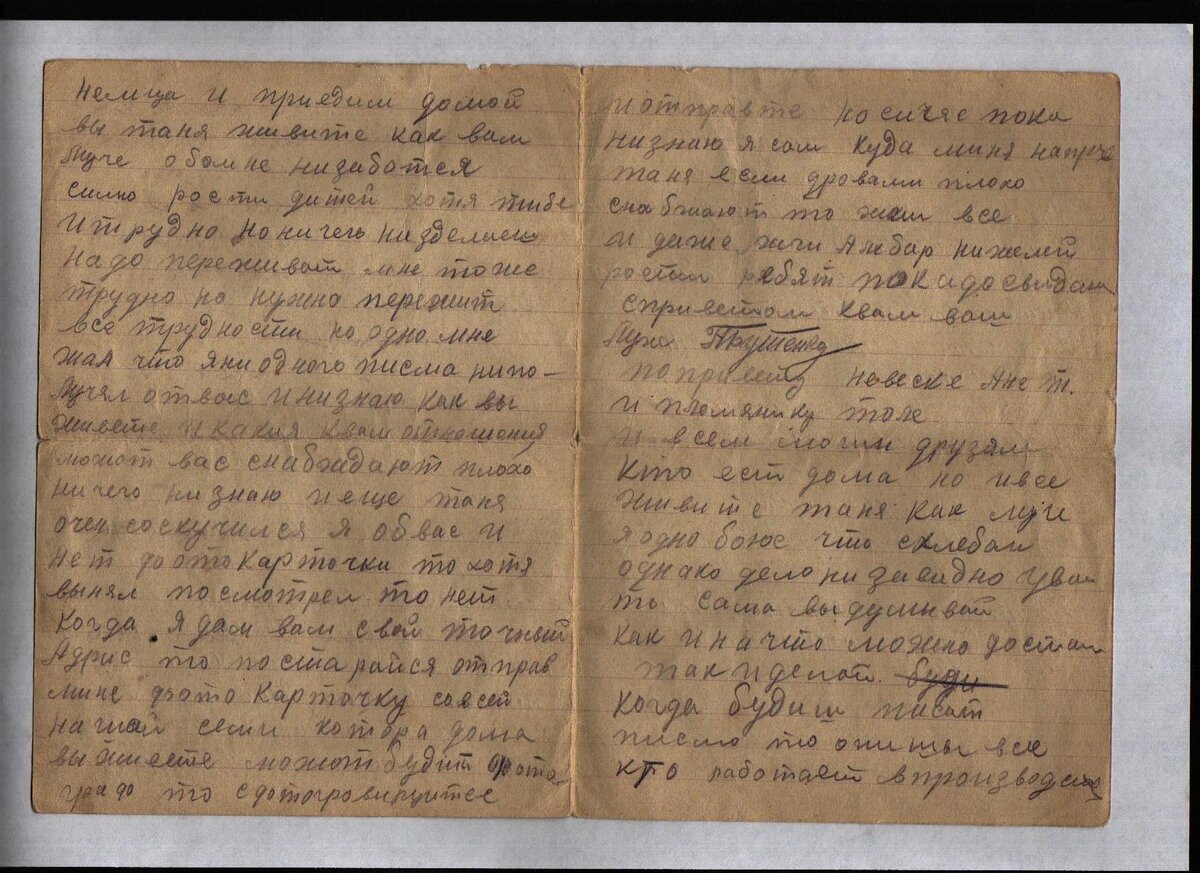 немца и приедим домой
вы таня живите как вам
луче обомне низаботся
силно рости дитей хотя тибе
и трудно но ничего низделаеш
надо переживат мне тоже
трудно но нужно пережит
все трудности но одно мне
жал что яниодного писма нипо-
лучял отвас инизнаю как вы
живете и какия квам отношения
можот вас снабждают плохо
ничего низнаю и еще таня
очен соскучился я обвас и
нет фотокарточки то хотя
вынял посмотрел то нет
когда я дам вам свой точный
Адрис то постарайся отправ
мине фото карточку совсей
нашей семи котора дома
вы живете можот будит фото
градо то сфотогровируитес
и отправте но сичяс пока
низнаю я сам куда миня напра
таня если дровами плохо
снабжают то жги все
и даже жги Амбар нижелей
рости ребят пока досвидан
сприветом квам ваш
Муж
поприветu невеске Яне т.
и пломянику тоже
и всем моим друзям
кто ест дома но ивсе
живите таня как луч
я одно боюс что схлебом
однако дело низавидно увам
ты сама выдумывай
как и начто можно достат
так и делай. буди
когда будиш писат
писмо то опишы все
кто работает впроизводстве